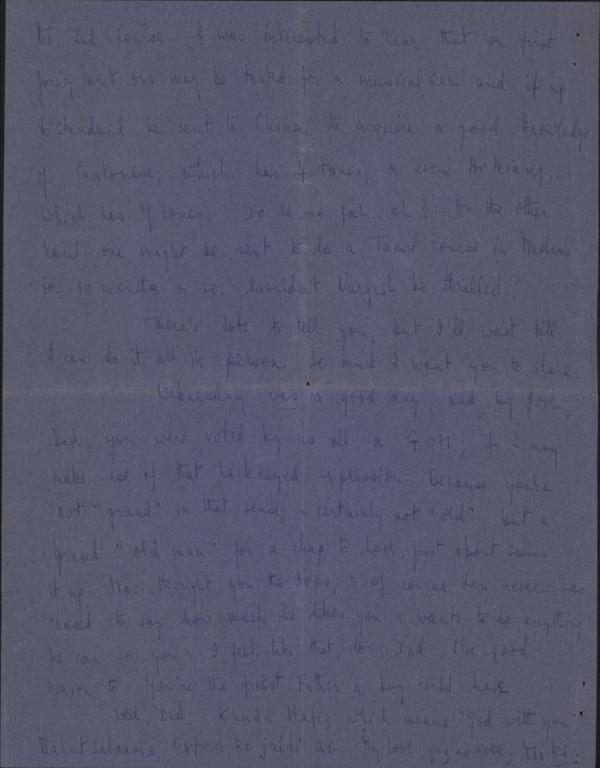 the 2nd Course. I was interested to hear that on first
going out one may be tested for a musical ear and if up
to standard be sent to China to acquire a good knowledge
of Cantonese, which has 4 tones, or even Hokiang,
which has 7 tones. Do re me fah eh? On the other
hand one might be sent to do a Tamil course in Madras
for 10 months or so. Wouldn't Nargesh be thrilled?
There's lots to tell you, but I'll wait till
I can do it all in person. So much I want you to share
Wednesday was a good day, and, by Jove,
Dad you were voted by us all a GOM, if I may
make use of that hackneyed expression. Because you're
not "grand" in that sense, & certainly not "old", but a
'grand' "old man" for a chap to have just about sums
it up. Mac thought you the tops, & of course Len never has
ceased to say how much he likes you & wants to do anything
he can for you. I feel like that, too, Dad. I've good
reason to. You're the finest Father a boy could have.
Well, Dad, Khuda Hafiz which means "God with you",
Bahut salaams, Oxford ko jaldi ao. My love as ever, Mike.